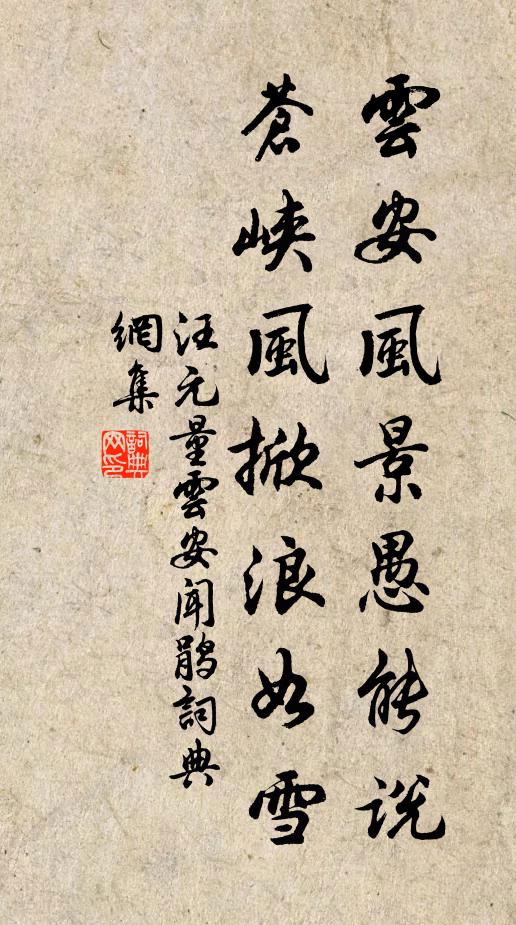 雲安風景愚能説
蒼峽風掀浪如雪
汪元量雲安聞鵑詞典
網集
詞典網印